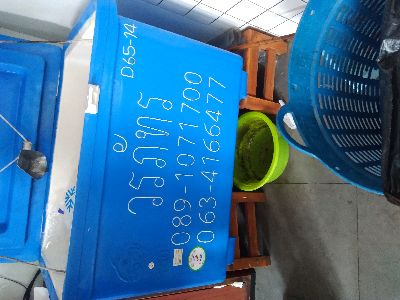 D65-14
วรภัทร
089-1071700
063-4166477